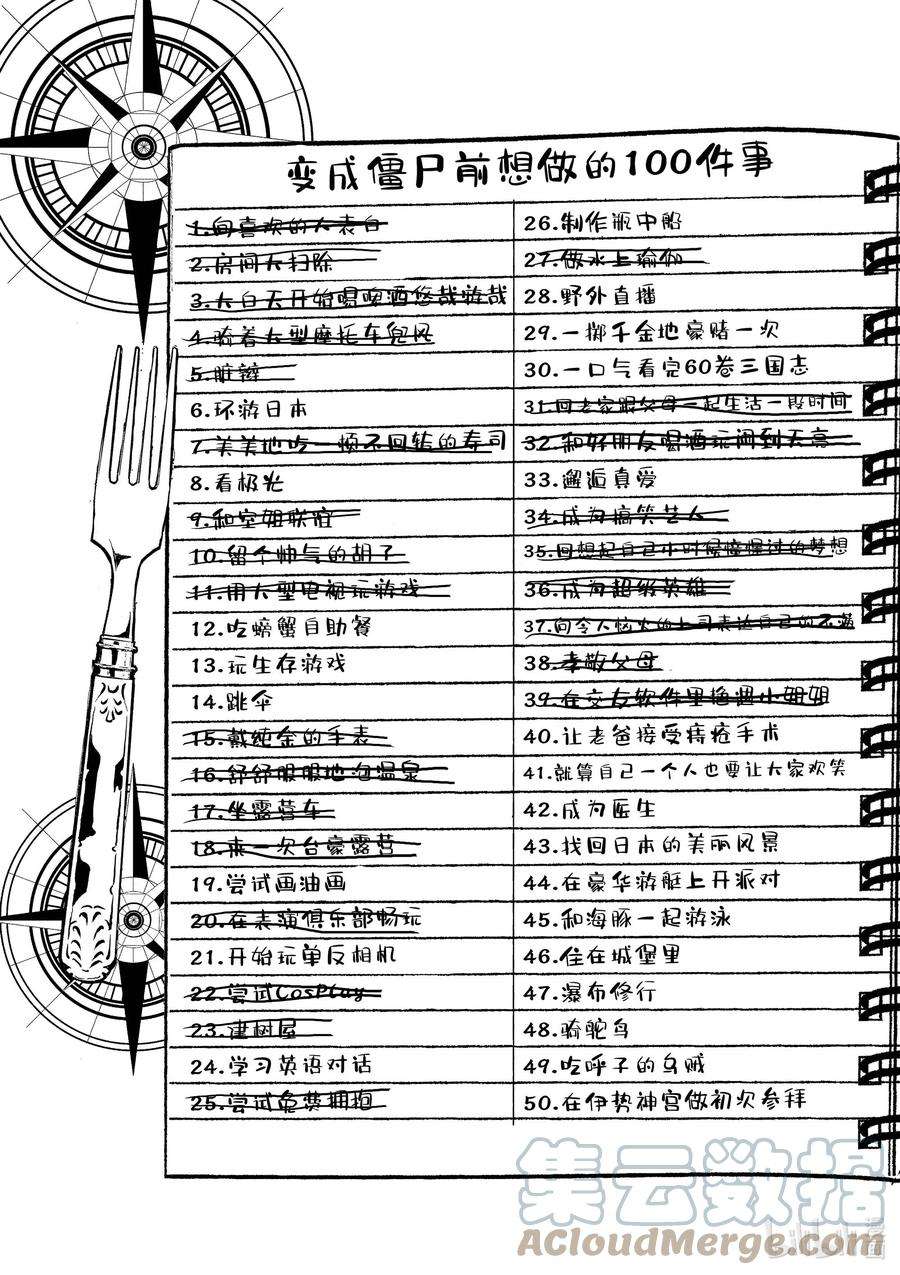 变成僵尸前想做的100件事
1.向喜欢的人表白
2.房间大扫除
3.大白天开始喝啤酒悠哉游哉
4.骑着大型摩托车兜风
5.脏辫
6.环游日本
7.美美地吃一顿不回转的寿司
8.看极光
9.和空姐联谊
10.留个帅气的胡子
11.用大型电视玩游戏
12.吃螃蟹自助餐
13.玩生存游戏
14.跳伞
15.戴纯金的手表
16.舒舒服服地泡温泉
17.坐露营车
18.来一次台豪露营
19.尝试画油画
20.在表演俱乐部畅玩
21.开始玩单反相机
22.尝试CosPlay
23.建树屋
24.学习英语对话
25.尝试免费拥抱
26.制作瓶中船
27.做水上瑜伽
28.野外直播
29.一掷千金地豪赌一次
30.一口气看完60卷三国志
31.回老家跟父母一起生活一段时间
32.和好朋友喝酒玩闹到天亮
33.邂逅真爱
34.成为搞笑艺人
35.回想起自己小时候憧憬过的梦想
36.成为超级英雄
37.向令人恼火的上司表达自己的不满
38.孝敬父母
39.在交友软件里艳遇小姐姐
40.让老爸接受痔疮手术
41.就算自己一个人也要让大家欢笑
42.成为医生
43.找回日本的美丽风景
44.在豪华游艇上开派对
45.和海豚一起游泳
46.住在城堡里
47.瀑布修行
48.骑鸵鸟
49.吃呼子的乌贼
50.在伊势神宫做初次参拜
集云数据
ACloudMerge.com